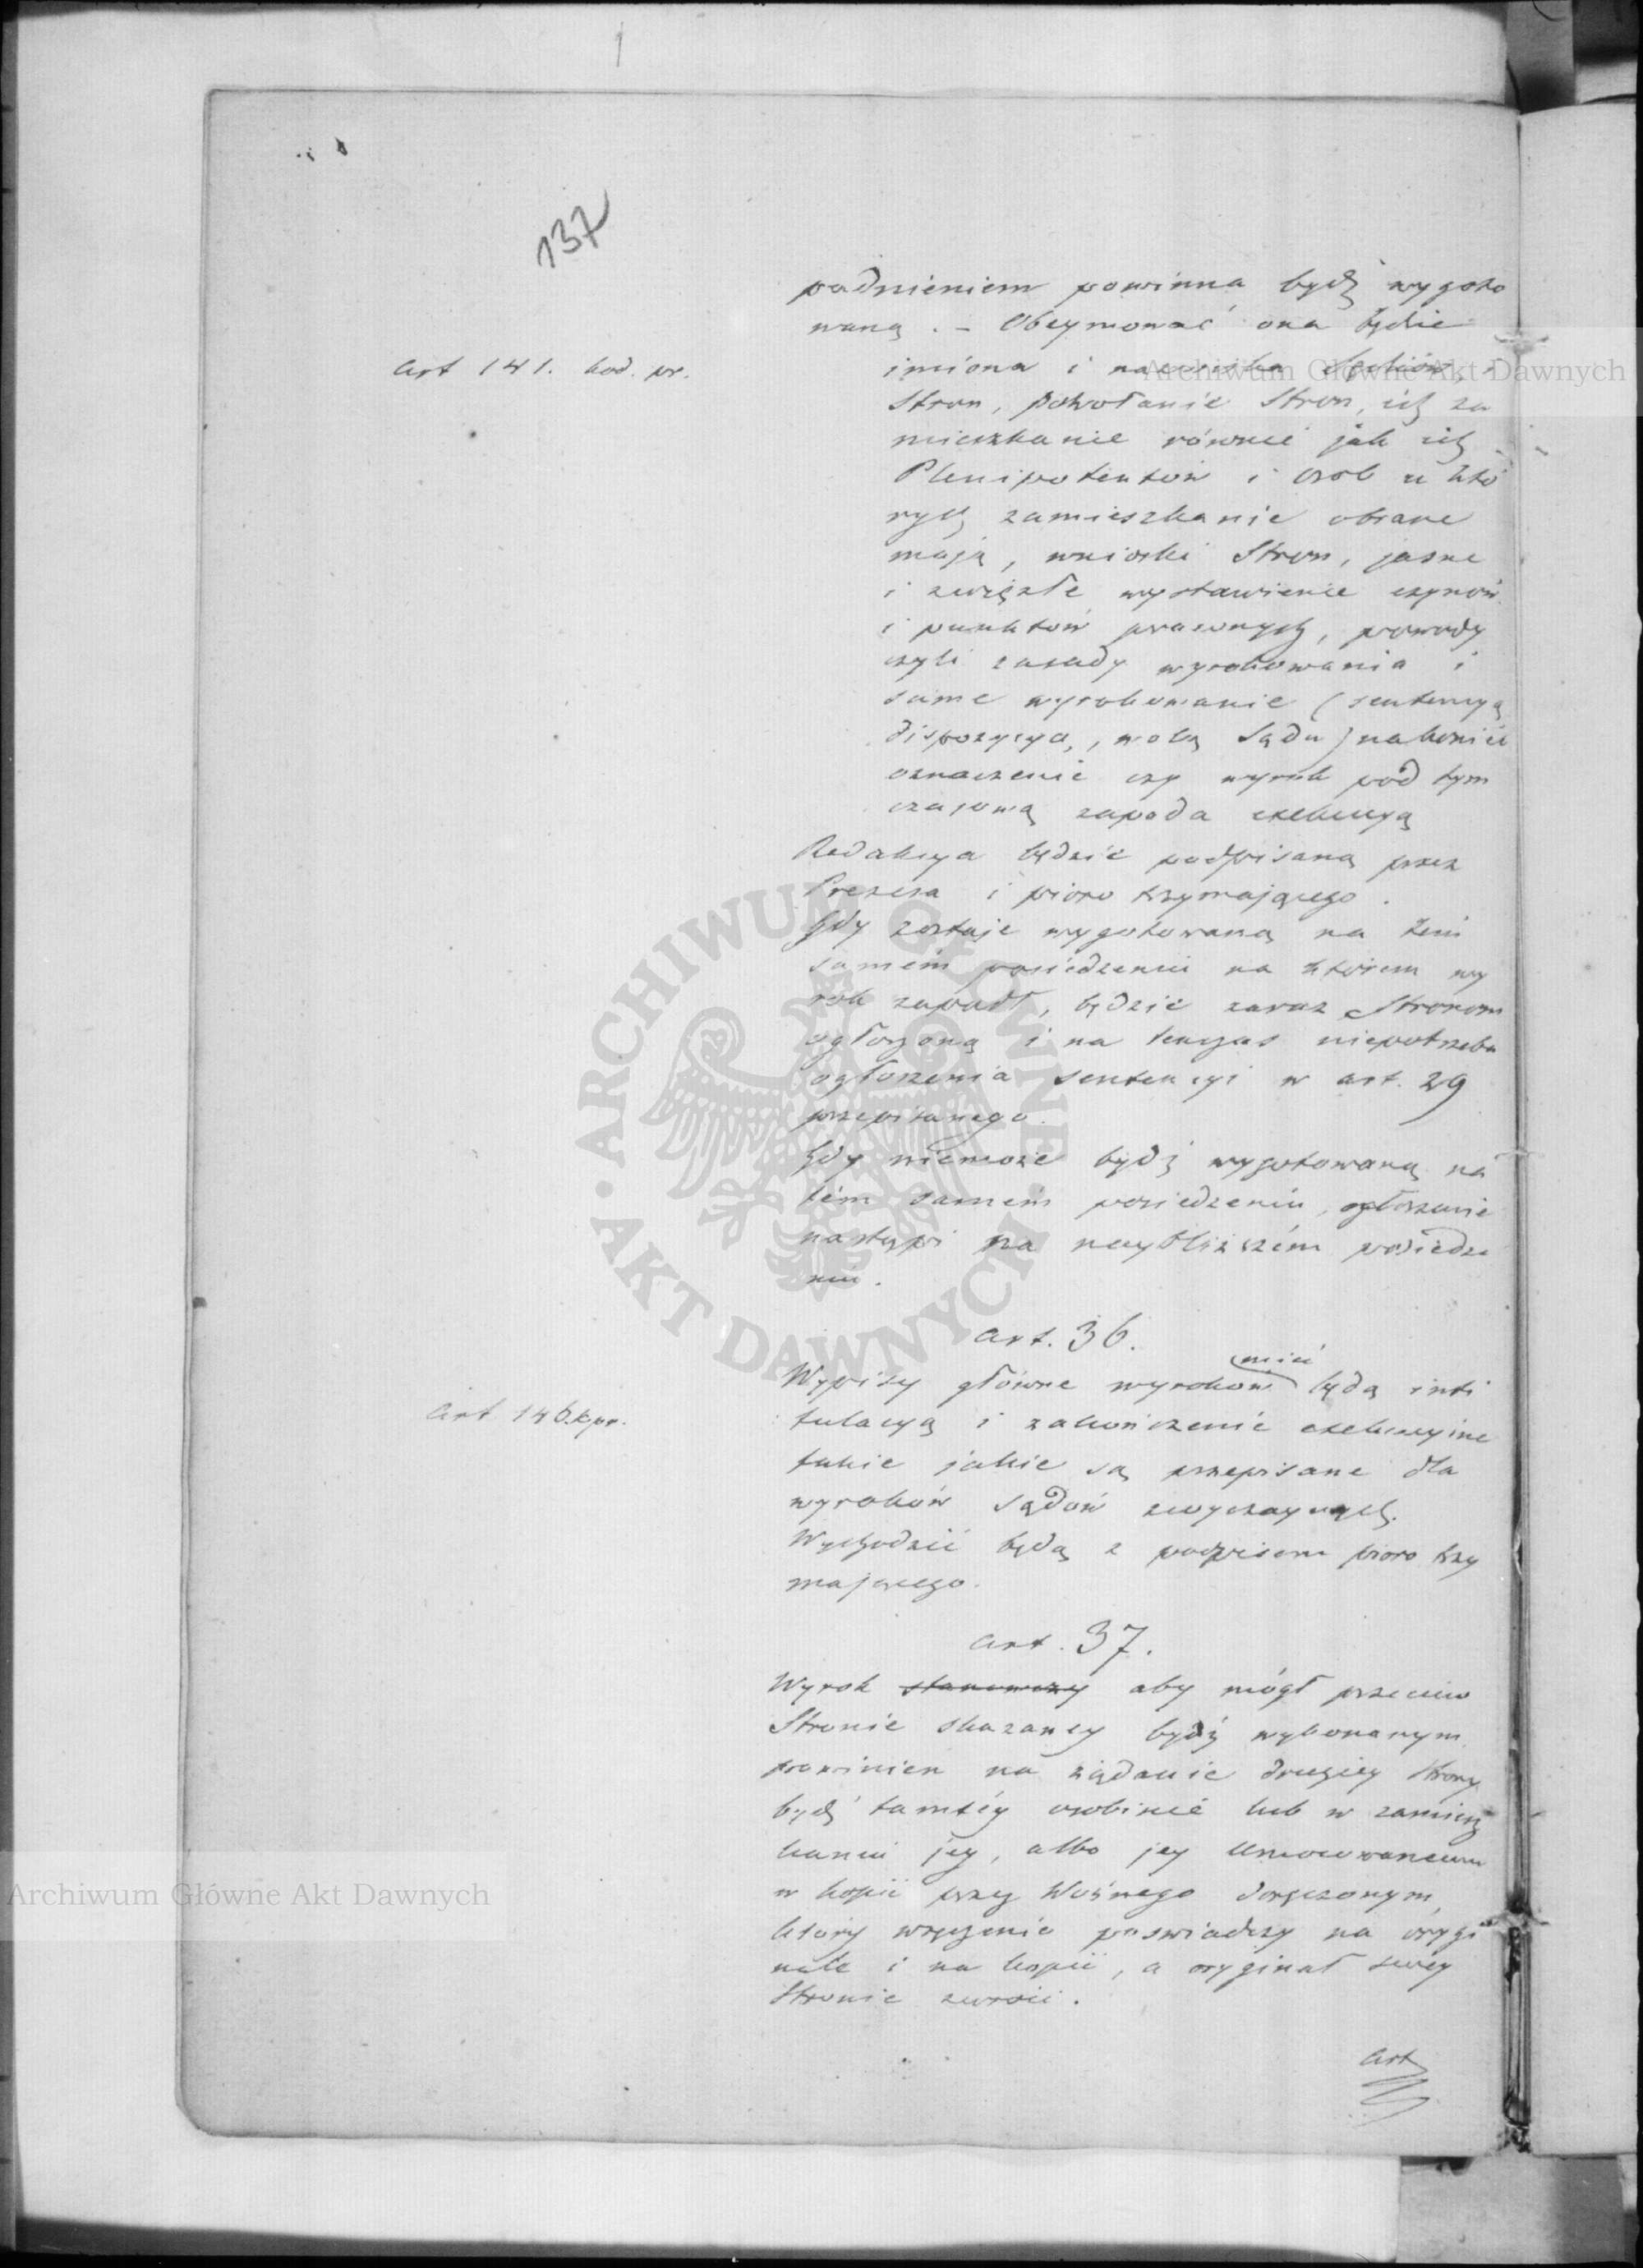 137
padnieniem powinna bydź wygoto
waną. – Obeymować ona będzie
Art 141. kod. pr.
imiona i nazwiska Sędziów, i
Stron, powołanie Stron, ich za
mieszkanie równie jak ich
Plenipotentów i osob u któ
rych zamieszkanie obrane
mają, wnioski Stron, jasne
i zwięzłe wystawienie czynów
i punktów prawnych, powody
czyli zasady wyrokowania i
same wyrokowanie (sentencyą
dispozycyą, wolą Sądu) nakoniec
oznaczenie czy wyrok pod tym
czasową zapada exekucyą
Redakcya będzie podpisaną przez
Prezesa i pioro trzymającego.
Gdy zostaje wygotowaną na tem
samem posiedzeniu na którem wy
rok zapadł, będzie zaraz Stronom
ogłoszoną i na tenczas niepotrzeba
ogłoszenia sentencyi w art. 29
przepisanego.
Gdy niemoże bydź wygotowaną na
tém samém posiedzeniu, ogłoszenie
nastąpi na naybliższém posiedze
niu.
Art. 36.
mieć
Wypisy główne wyroków będą inti
Art 146. k pr.
tulacyą i zakończenie exekucyjne
takie jakie są przepisane dla
wyroków sądów zwyczaynych.
Wychodzić będą z podpisem pioro trzy
mającego.
Art. 37.
Wyrok stanowczy aby mógł przeciwo
Stronie skazaney bydź wykonanym
powinien na żądanie drugiey Strony
bydź tamtéy osobiście lub w zamiesz
kaniu jey, albo jey Umocowanemu
w kopii przez Woźnego doręczonym,
który wręczenie poświadczy na orygi
nale i na kopii, a oryginał swéy
Stronie zwróci.
Art
Archiwum Główne Akt Dawnych
Archiwum Główne Akt Dawnych
ARCHIWUM GŁÓWNE • AKT DAWNYCH •